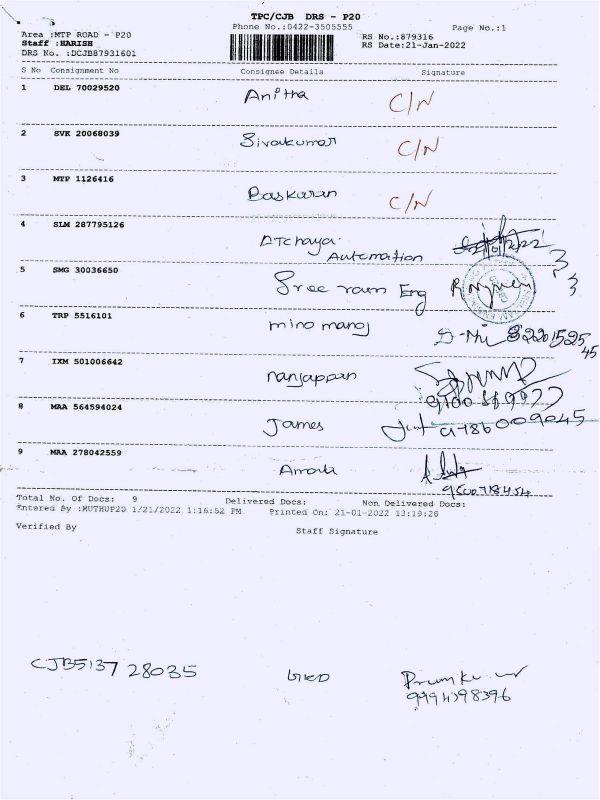 TPC/CJB DRS - P20
Phone No.:0422-3505555 Page No.:1
Area :MTP ROAD - P20 RS No.:879316
Staff :HARISH RS Date:21-Jan-2022
DRS No. :DCJB87931601
S No Consignment No Consignee Details Signature
1 DEL 70029520 Anitha C/N
2 SVK 20068039 Sivakumar C/N
3 MTP 1126416 Baskaran C/N
4 SLM 287795126 ATchaya Automation
5 SMG 30036650 Sree ram Eng
6 TRP 5516101 mino manoj
7 IXM 501006642 nanjappan
8 MAA 564594024 James 9786009045
9 MAA 278042559
Total No. Of Docs: 9 Delivered Docs: Non Delivered Docs:
Entered By :MUTHUP20 1/21/2022 1:16:52 PM Printed On: 21-01-2022 13:19:26
Verified By Staff Signature
CJB513728035
9994398396